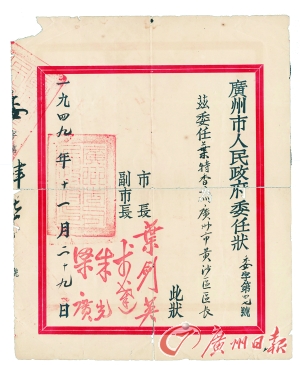 廣州市人民政府委任狀
委字第 號
茲委任葉特查為廣州市黃沙區區長
此狀
市長 葉劍英
副市長 朱光
梁廣
一九四九年十一月二十九日
廣州日報